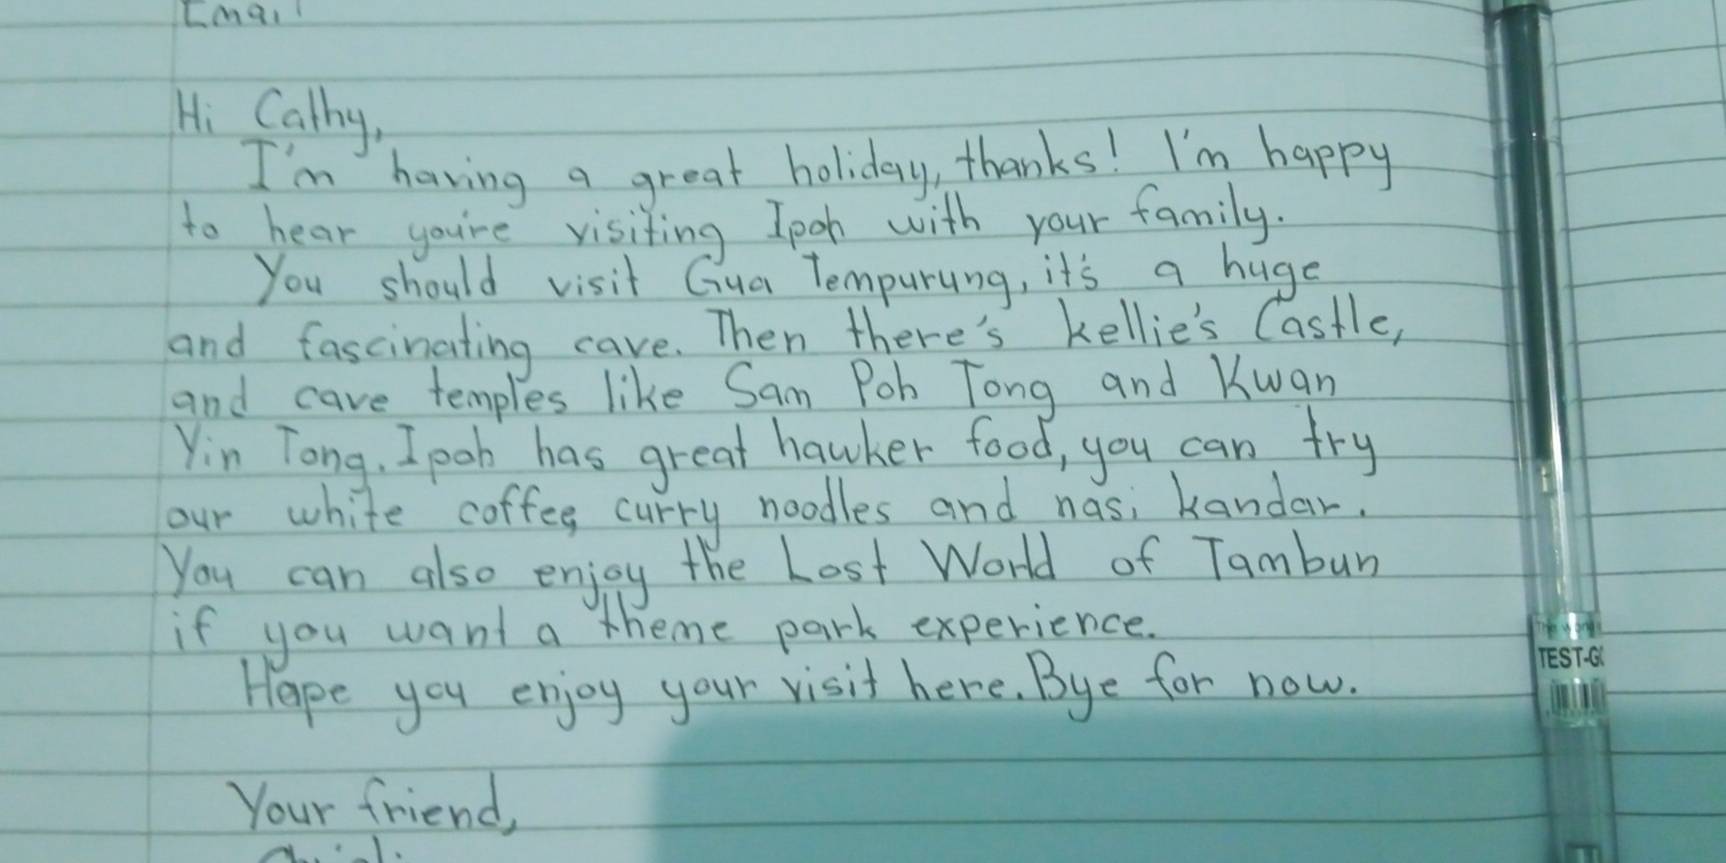 Email
Hi Cathy,
I'm having a great holiday, thanks! I'm happy
to hear you're visiting Ipoh with your family.
You should visit Gua Tempurung, it's a huge
and fascinating cave. Then there's Kellie's Castle,
and cave temples like Sam Poh Tong and Kwan
Yin Tong. Ipoh has great hawker food, you can try
our white coffee, curry noodles and nasi kandar.
You can also enjoy the Lost World of Tambun
if you want a theme park experience.
Hope you enjoy your visit here. Bye for now.
Your friend,
TEST-G